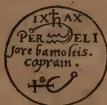 IX AX
PER ELI
sore bamoltis.
capram.